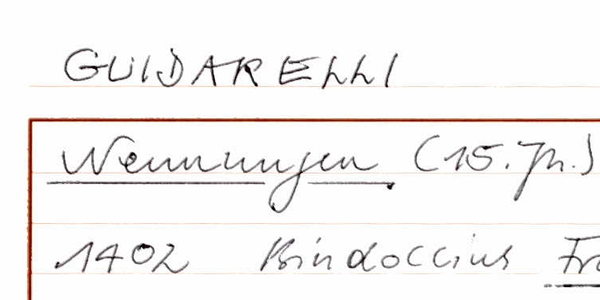 GUIDARELLI
Nennungen (15. Jh.)
1402 Bindoccius Fra